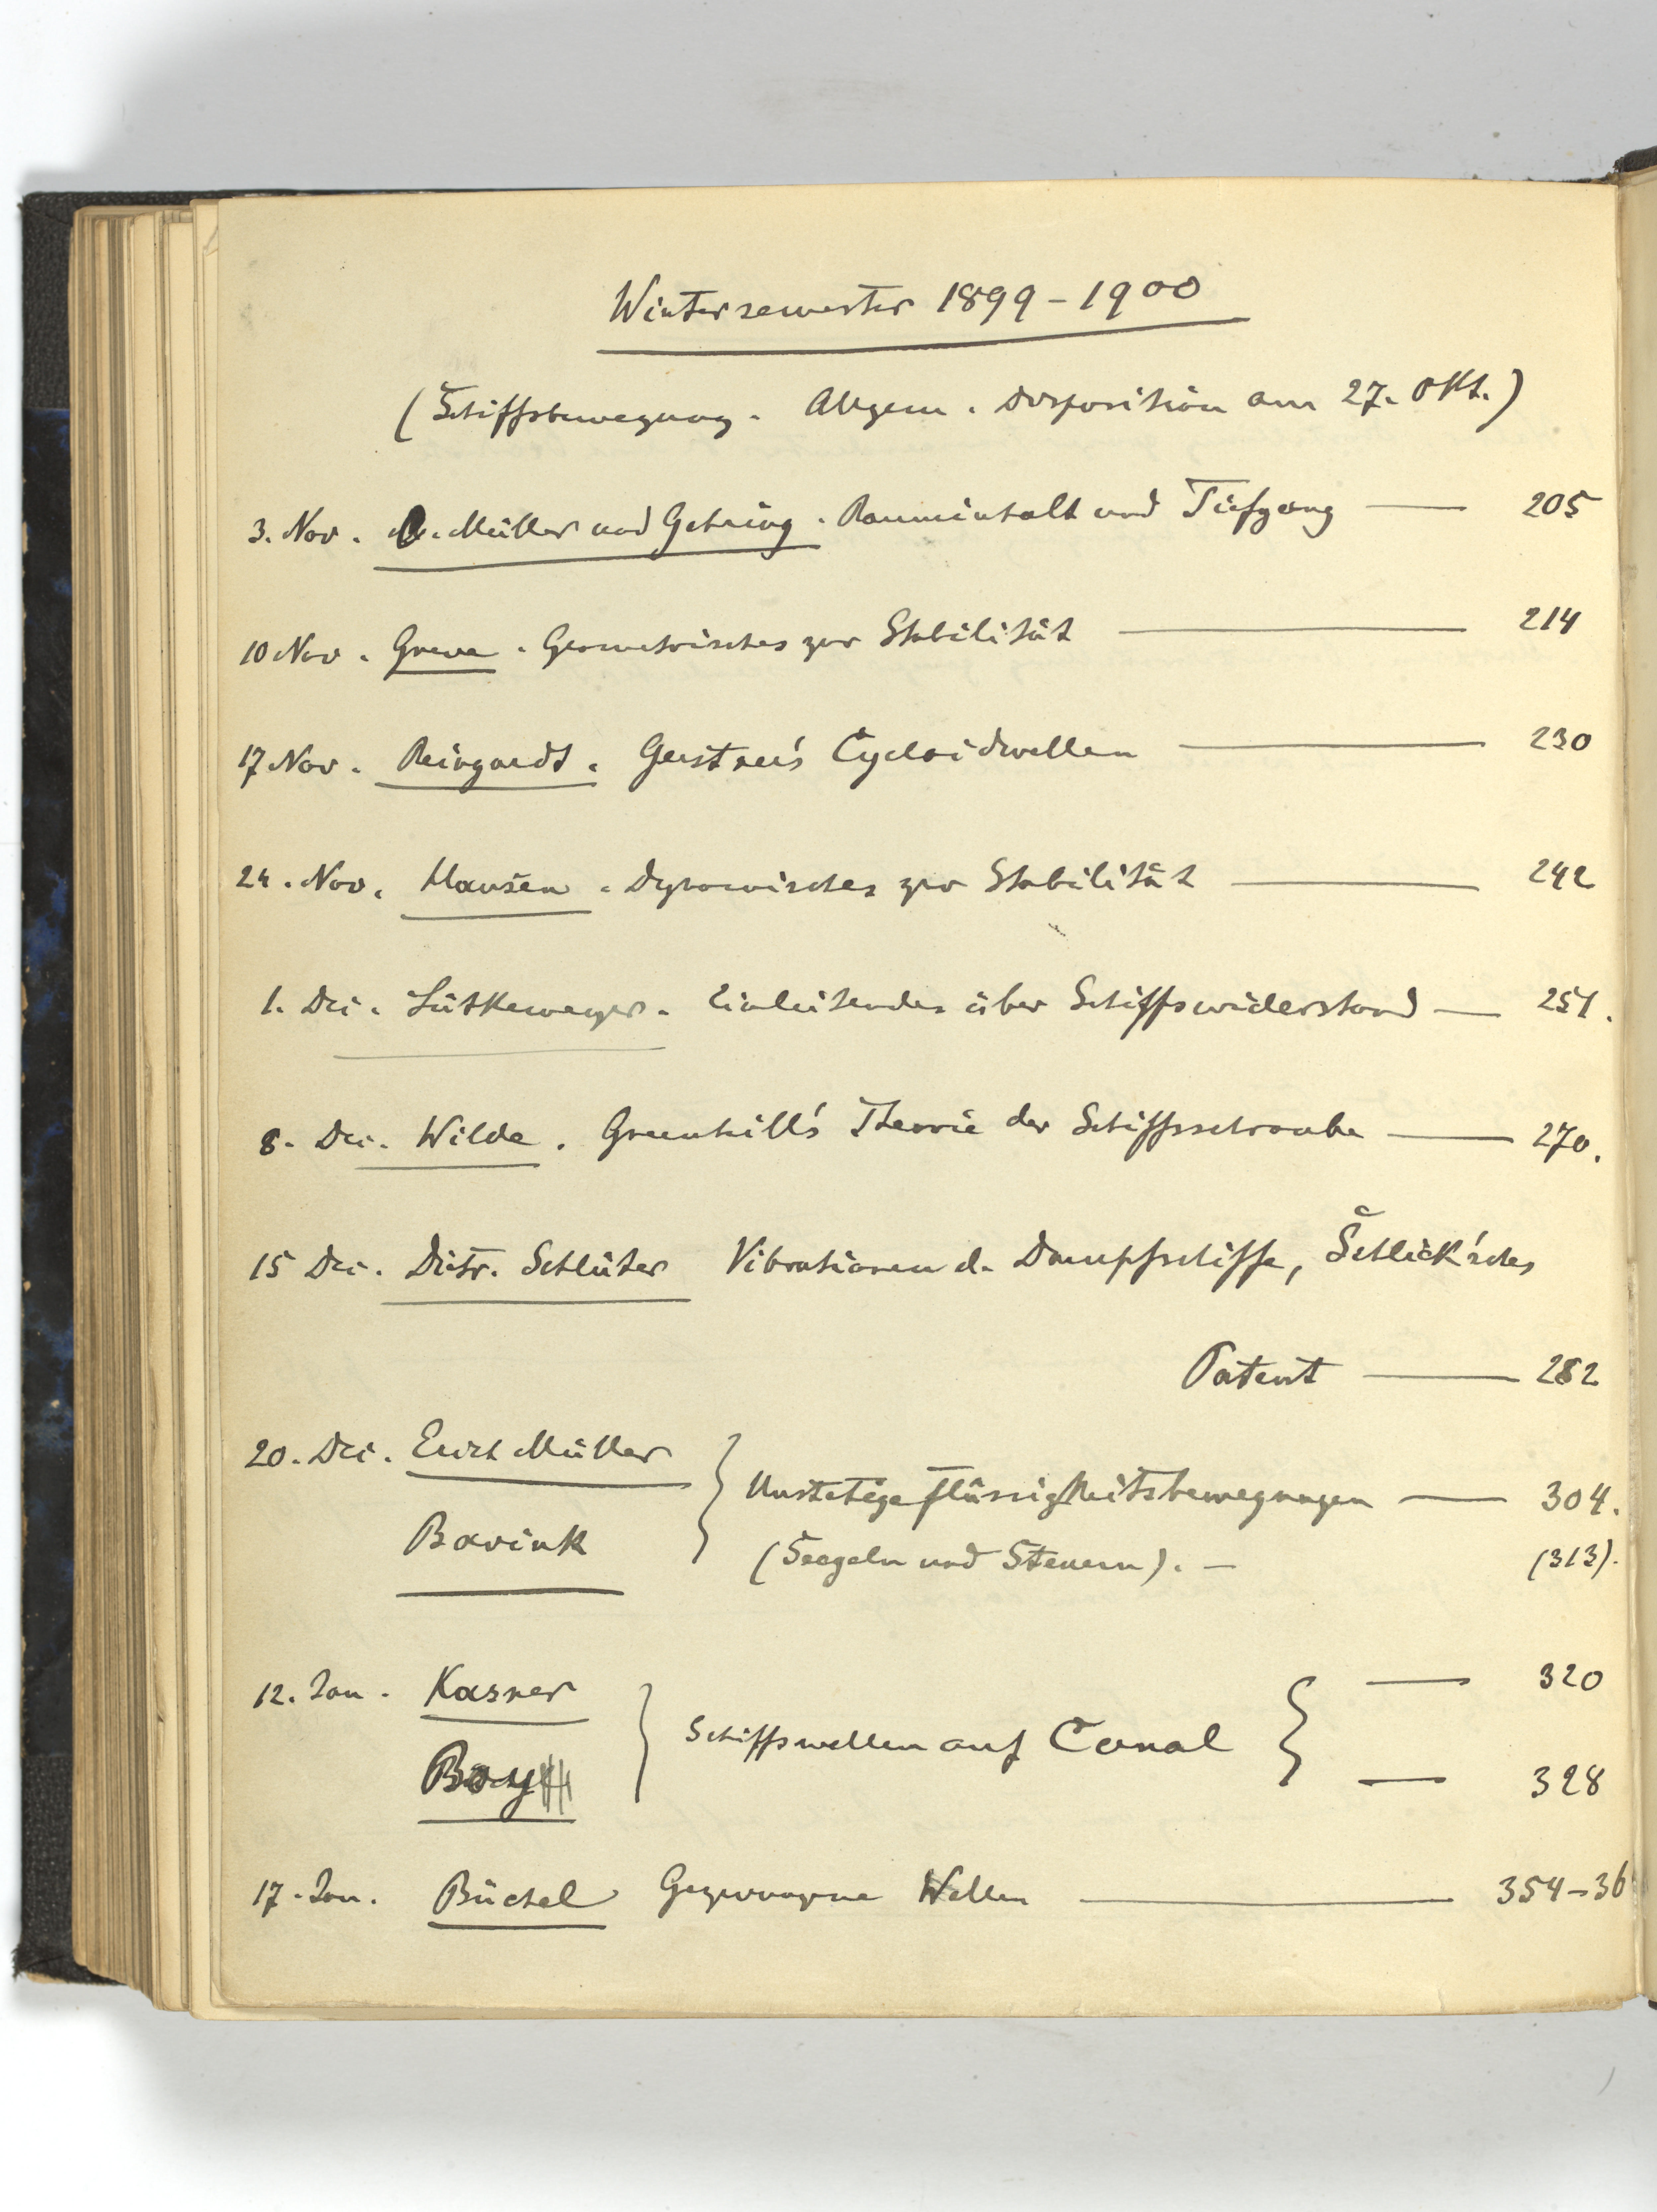 Wintersemester 1899-1900
(Schiffsbewegung. Allgem. Disposition am 27. Okt.)
3. Nov. Müller und Gehring. Rauminhalt und Tiefgang — 205
10 Nov. Greve. Geometrisches zur Stabilität — 214
17 Nov. Reingardt. Gerstner's Cycloidwellen — 230
24. Nov. Hansen. Dynamisches zur Stabilität — 242
1. Dec. Lütkemeyer. Einleitendes über Schiffswiderstand — 251.
8. Dec. Wilde. Greenhill's Theorie der Schiffsschraube — 270.
15 Dec. Dietr. Schlüter Vibrationen d. Dampfschiffe, Schlick'sches
Patent — 282
20. Dec. Erich Müller
Bavink
Unstetige Flüssigkeitsbewegungen — 304.
(Seegeln und Steuern). — (313).
12. Jan. Kasner — 320
Boy — 328
Schiffswellen auf Canal
17. Jan. Büchel Gezwungene Wellen — 354-36